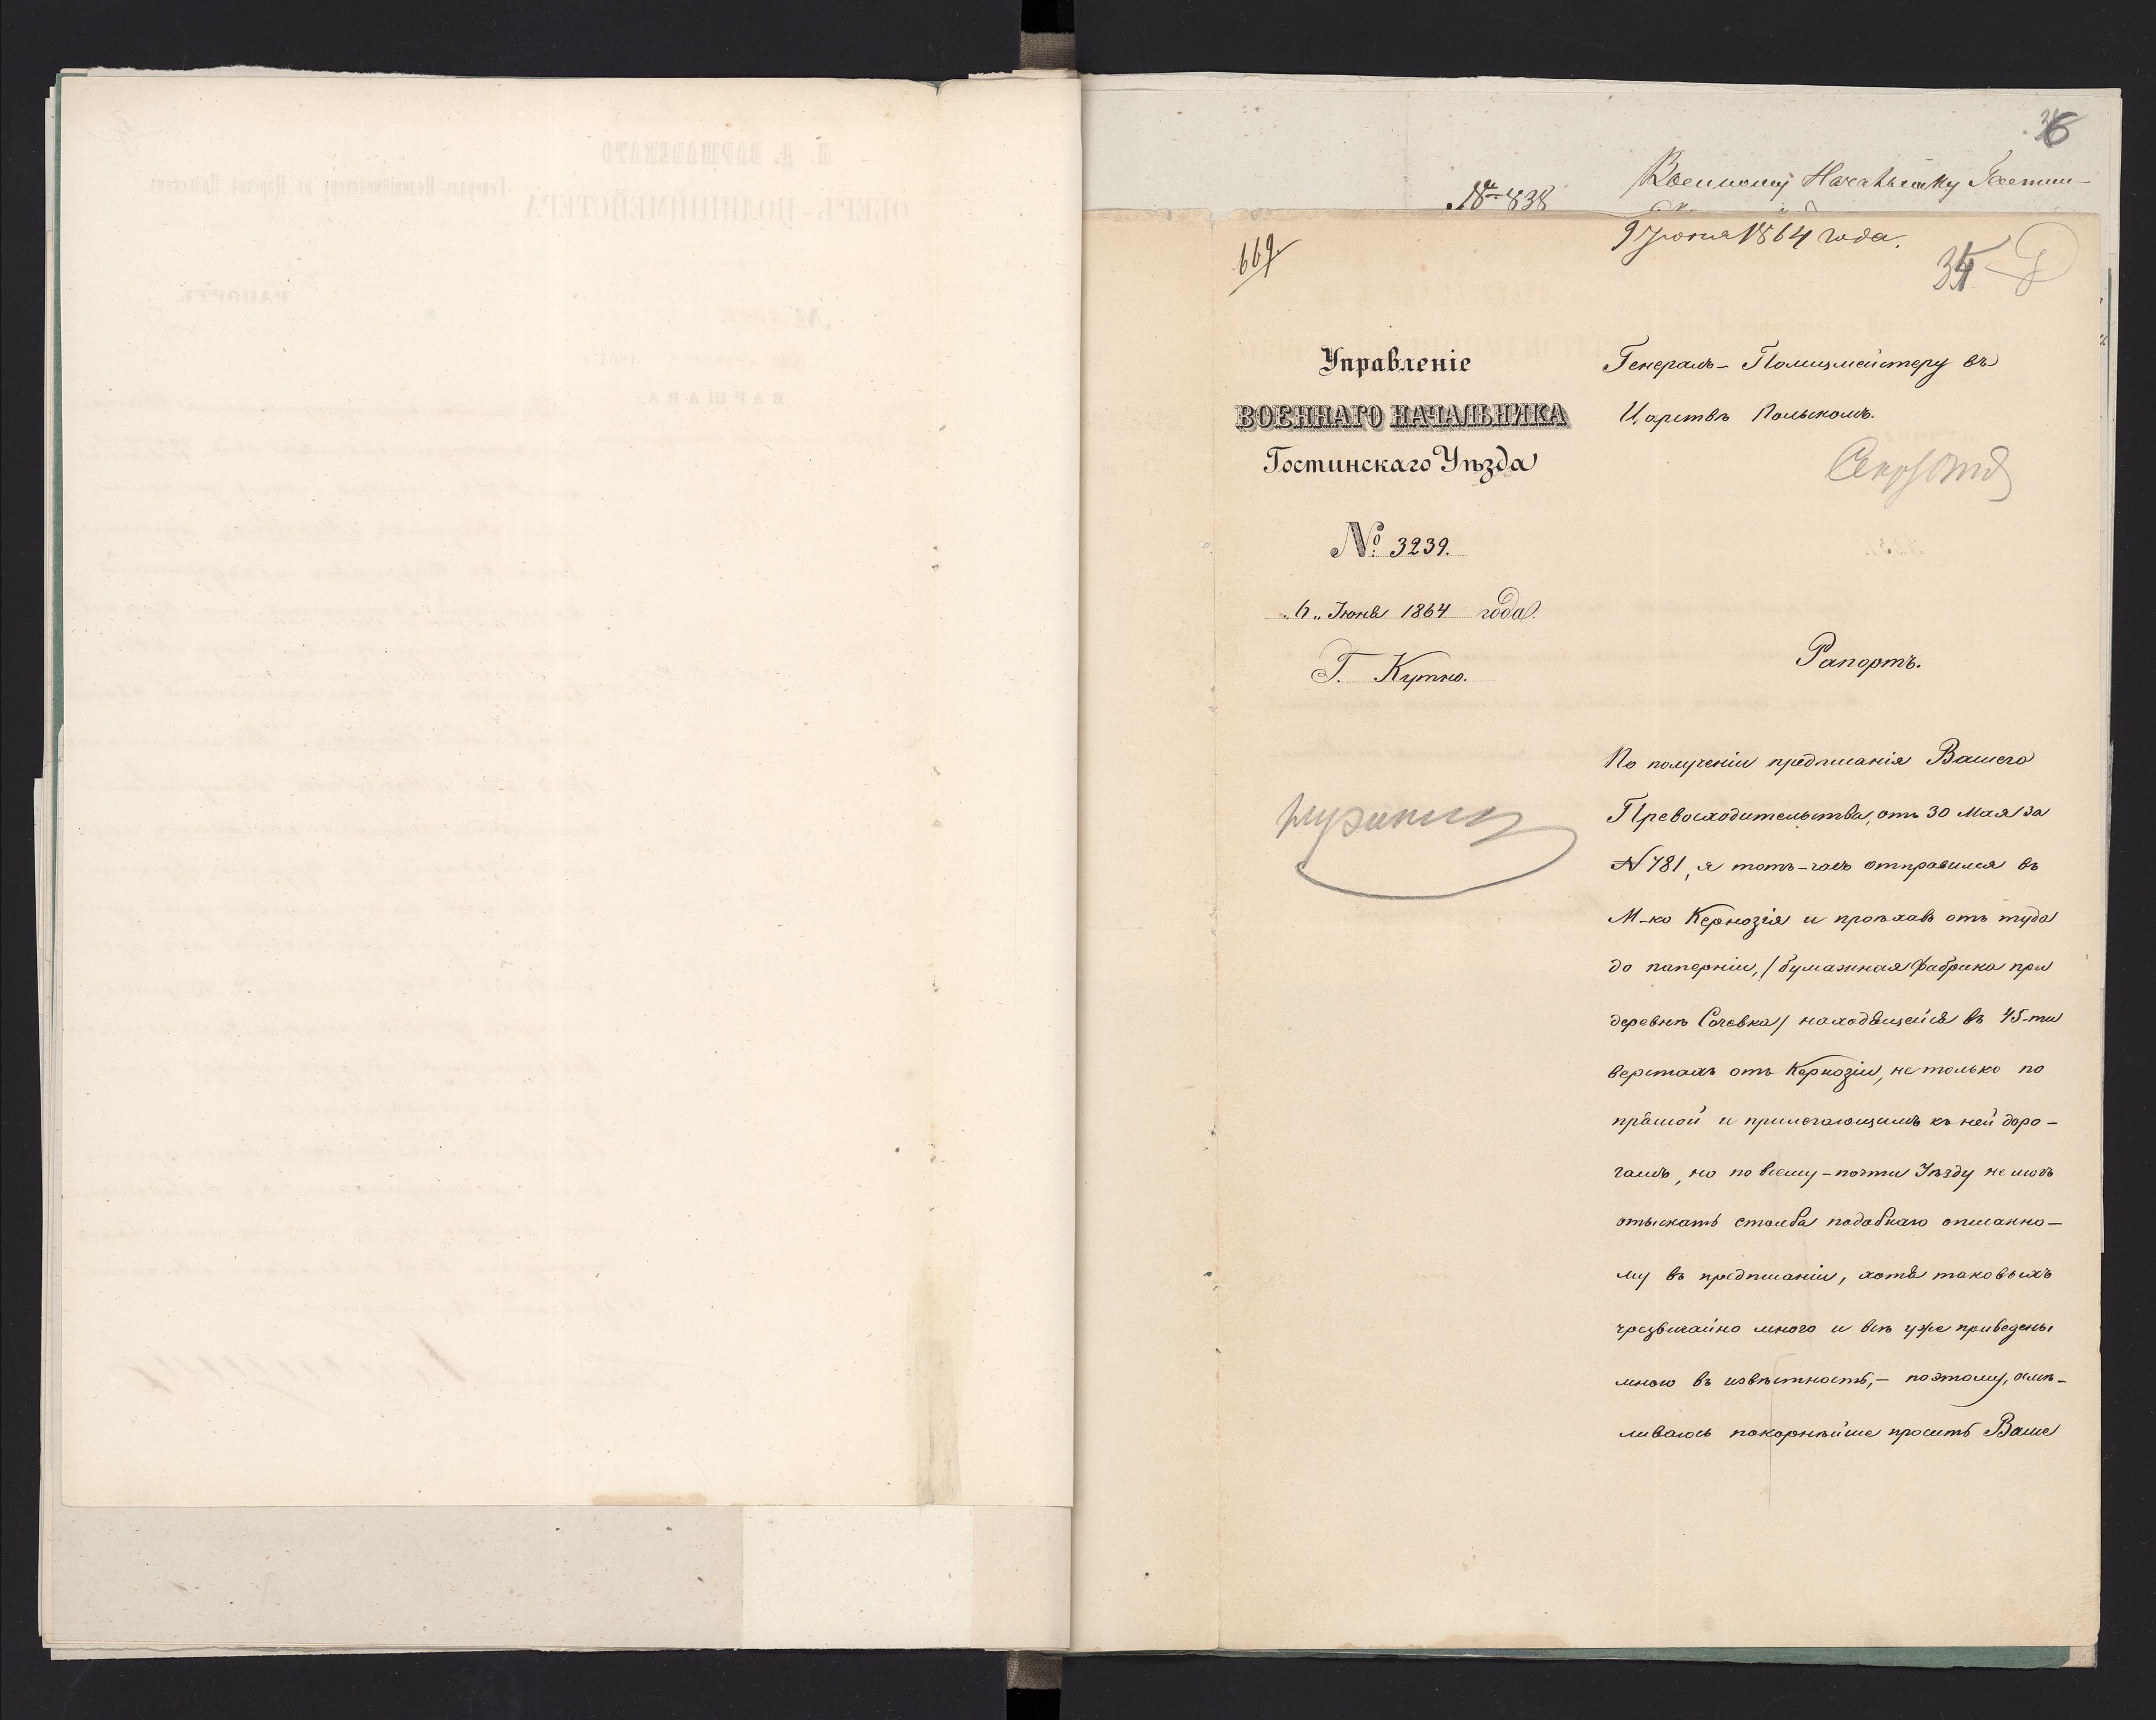 36
№ 838
Военному Начальнику Гостин-
9 Іюня 1864 года.
669
34
Управленіе
ВОЕННАГО НАЧАЛЬНИКА
Гостинскаго Уѣзда
№ 3239.
„6„ Іюня 1864 года.
Г. Кутно.
Генералъ-Полиціймейстеру въ
Царствѣ Польскомъ.
Рапортъ.
По полученіи предписанія Вашего
Превосходительства, отъ 30 Мая за
№ 781, я тотъ-часъ отправился въ
М-ко Кернозія и проѣхавъ отъ туда
до паперніи, /бумажная фабрика при
деревнѣ Сочевка/ находящейся въ 45-ти
верстахъ отъ Кернозіи, не только по
прямой и прилегающимъ къ ней доро-
гамъ, но по всему-почти Уѣзду не могъ
отыскать столба подобнаго описанно-
му въ предписаніи, хотя таковыхъ
чрезвычайно много и всѣ уже приведены
мною въ извѣстность,- поэтому, осмѣ-
ливаюсь покорнѣйше просить Ваше